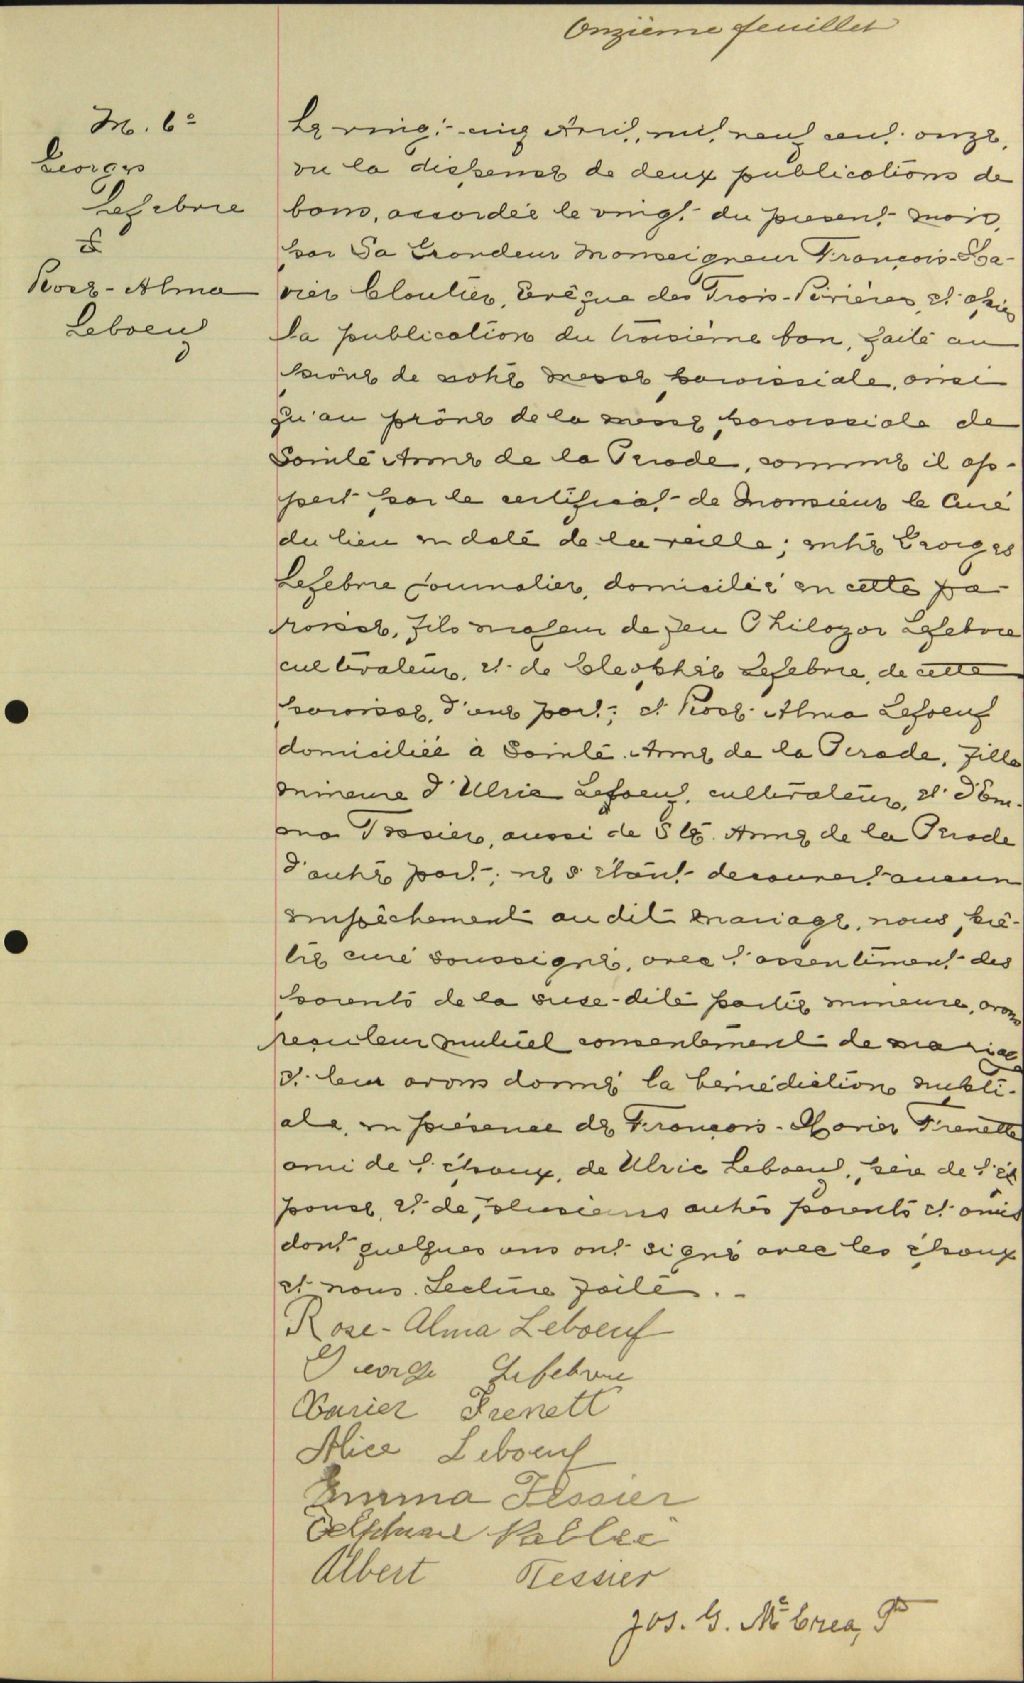 Onzième feuillet
M. 6e
Georges
Lefebvre
&
Rose-Alma
Leboeuf
Le vingt-cinq Avril, mil neuf cent onze,
vu la dispense de deux publications de
bans, accordée le vingt du present mois,
par Sa Grandeur Monseigneur François-Xa-
vier Cloutier, Evêque des Trois-Rivières, et après
la publication du troisième ban, faite au
prône de notre messe paroissiale, ainsi
qu'au prône de la messe paroissiale de
Sainte Anne de la Perade, comme il ap-
pert par le certificat de Monsieur le Curé
du lieu en date de la veille; entre Georges
Lefebvre journalier, domicilié en cette pa-
roisse, fils majeur de feu Lefebvre
cultivateur, et de Cleophée Lefebvre, de cette
paroisse, d'une part; et Rose-Alma Leboeuf
domiciliée à Sainte Anne de la Perade, fille
mineure d'Ulric Leboeuf, cultivateur, et d'Em-
ma Tessier, aussi de Ste. Anne de la Perade
d'autre part; ne s'étant decouvert aucun
empêchement au dit mariage, nous, prê-
tre curé soussigné, avec l'assentiment des
parents de la suse-dite partie mineure, avons
reçu leur mutuel consentement de mariage
et leur avons donné la bénédiction nupti-
ale, en présence de François-Xavier Frenette
ami de l'époux, de Ulric Leboeuf, père de l'é-
pouse, et de plusieurs autres parents et amis
dont quelques uns ont signé avec les époux
et nous. Lecture faite.-
Rose-Alma Leboeuf
George Lefebvre
Xavier Frenett
Alice Leboeuf
Emma Tessier
Albert Tessier
Jos. G. McCrea, Ptre